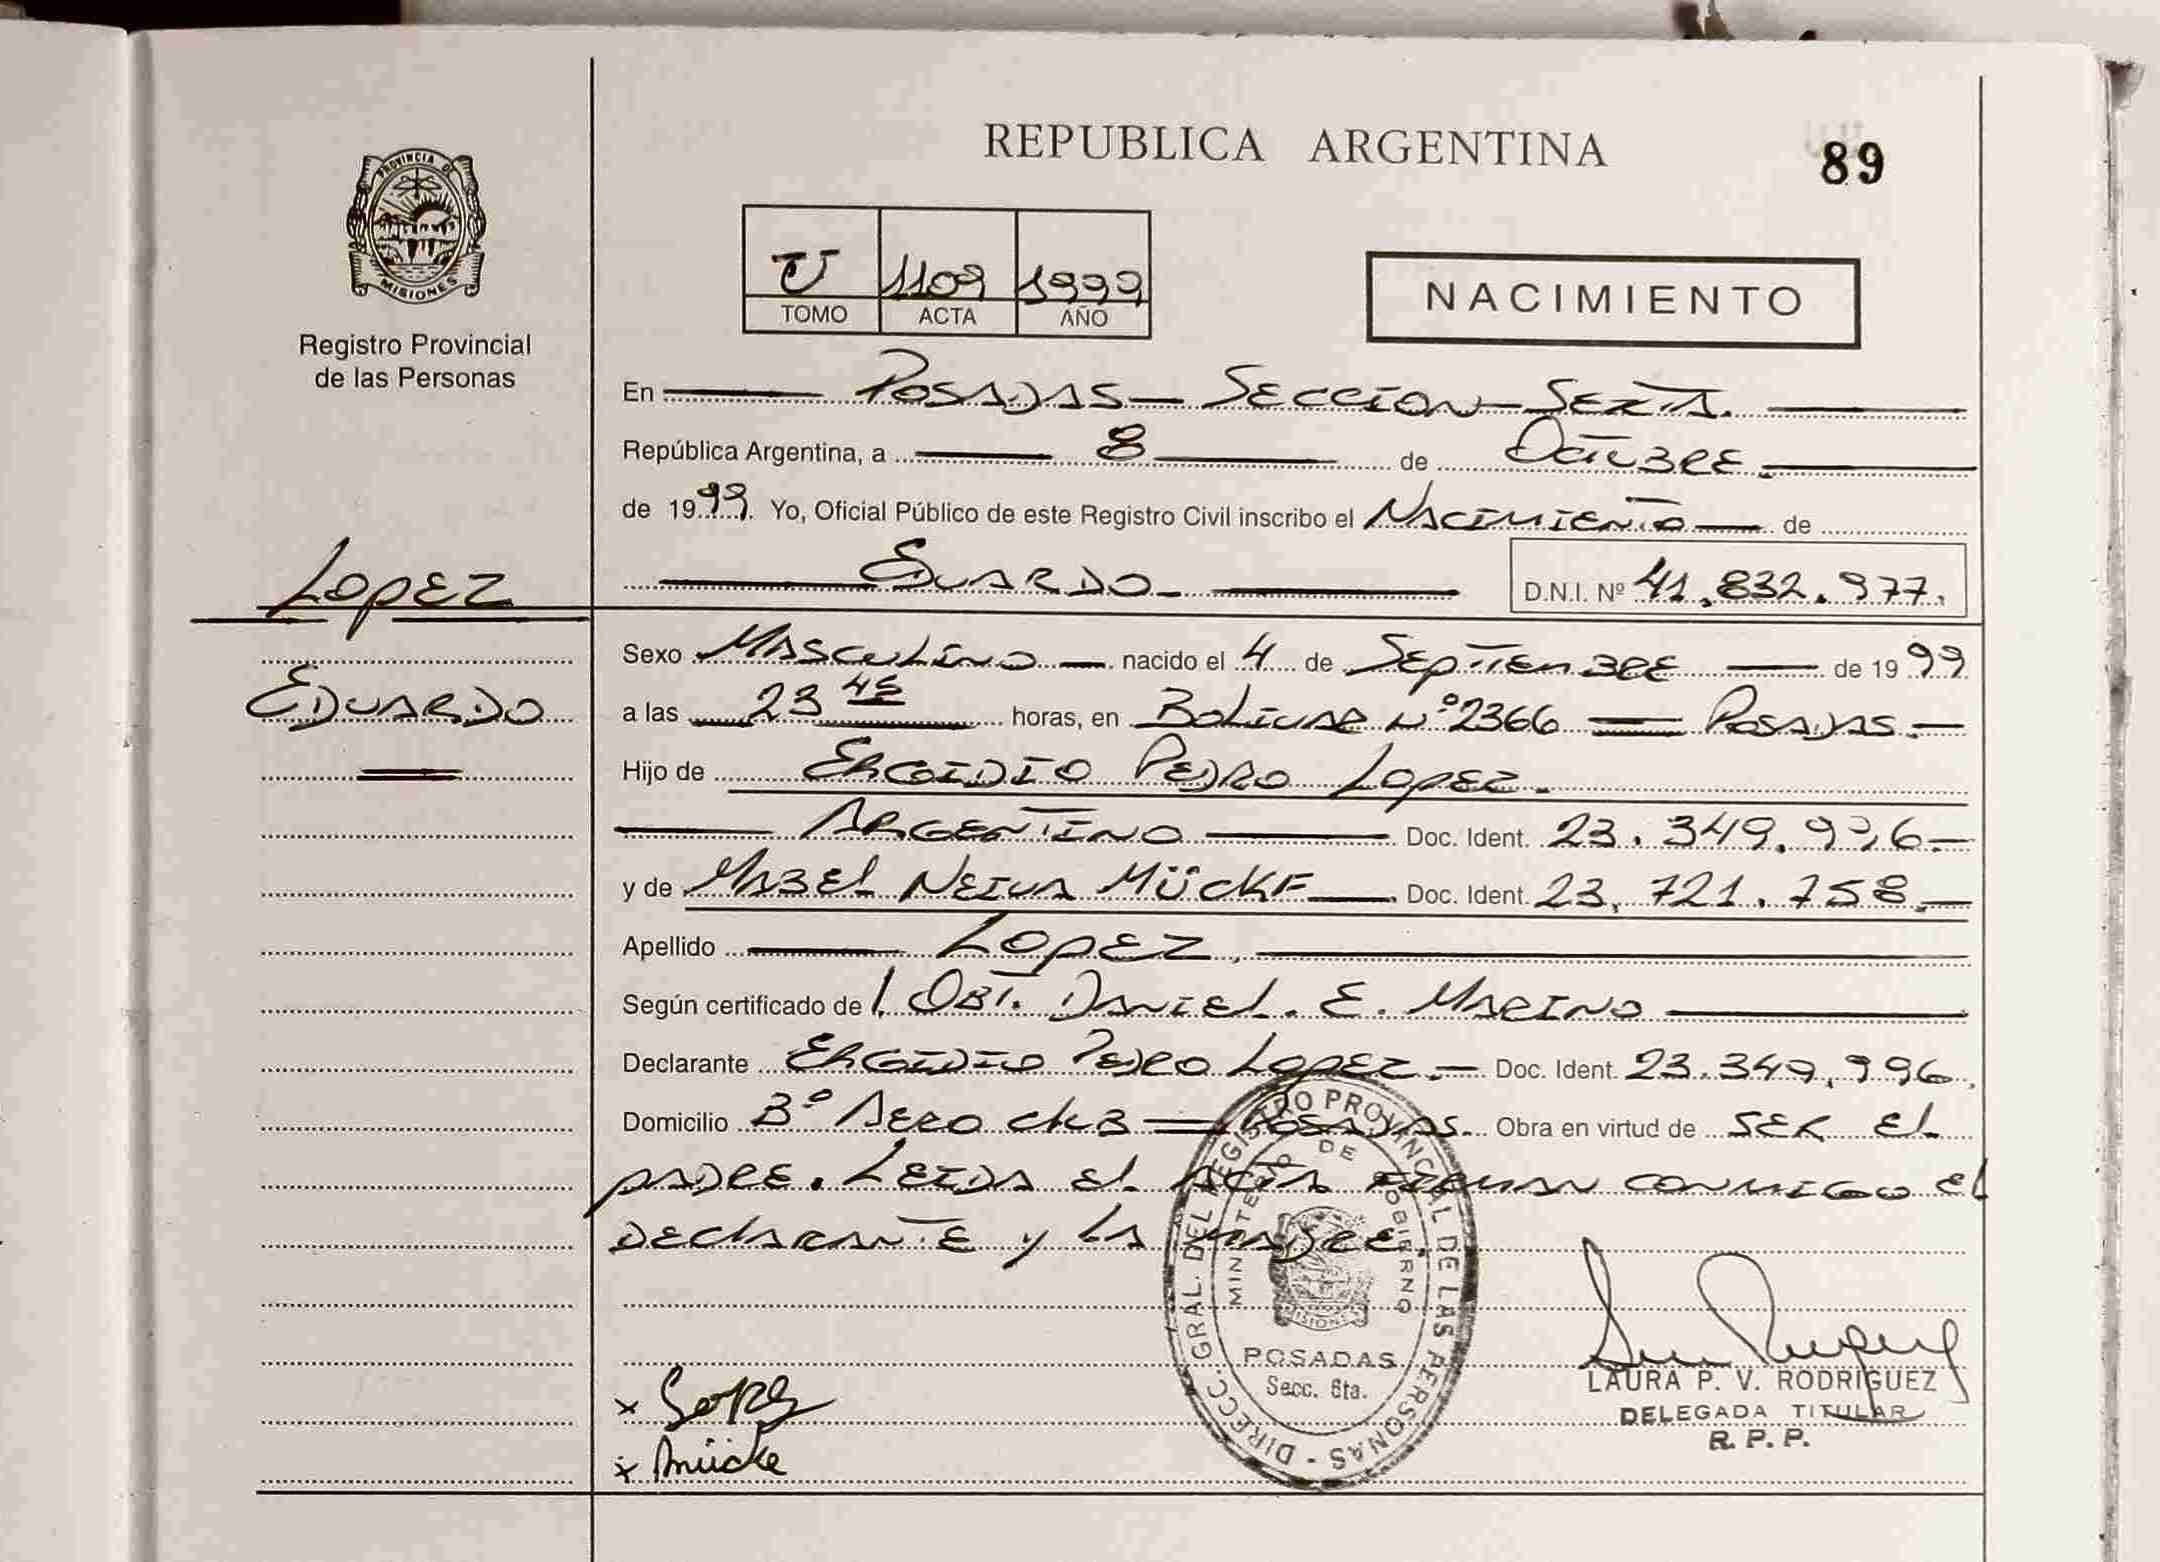 REPUBLICA ARGENTINA
89
PROVINCIA DE
MISIONES
Registro Provincial
de las Personas
1109 1999
TOMO ACTA AÑO
NACIMIENTO
En POSADAS - SECCION SEXTA.
República Argentina, a 8 de OCTUBRE
de 1999. Yo, Oficial Público de este Registro Civil inscribo el NACIMIENTO de
EDUARDO D.N.I. Nº 41.832.977.
LOPEZ
EDUARDO
Sexo MASCULINO nacido el 4 de SEPTIEMBRE de 1999
a las 23 45 horas, en BOLIVAR Nº 2366 POSADAS.
Hijo de PEDRO LOPEZ.
ARGENTINO Doc. Ident. 23.349.996
y de MABEL NEIVA MÜCKE Doc. Ident. 23.721.758.
Apellido LOPEZ.
Según certificado de OBT. DANIEL. E. MARINO
Declarante PEDRO LOPEZ. Doc. Ident. 23.349.996.
Domicilio Bº AERO CLUB POSADAS. Obra en virtud de SER EL
PADRE. LEIDA EL ACTA FIRMAN CONMIGO EL
DECLARANTE Y LA MADRE.
DIRECC. GRAL. DEL REGISTRO PROVINCIAL DE LAS PERSONAS
MINISTERIO DE GOBIERNO
MISIONES
POSADAS
Secc. 6ta.
x Lopez
x Mücke
LAURA P. V. RODRIGUEZ
DELEGADA TITULAR
R. P. P.